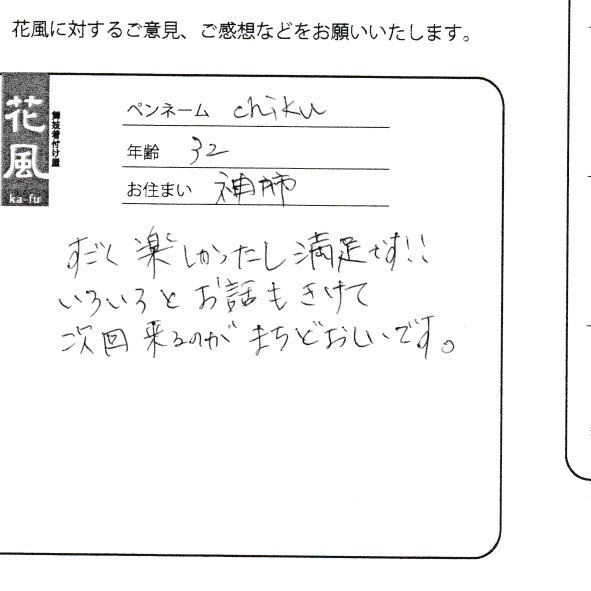 花風に対するご意見、ご感想などをお願いいたします。
花風
ka-fu
舞妓着付け屋
ペンネーム chiku
年齢 32
お住まい 神姉
すごく 楽しかったし 満足です!!
いろいろと お話も きけて
次回 来るのが まちどおしいです。